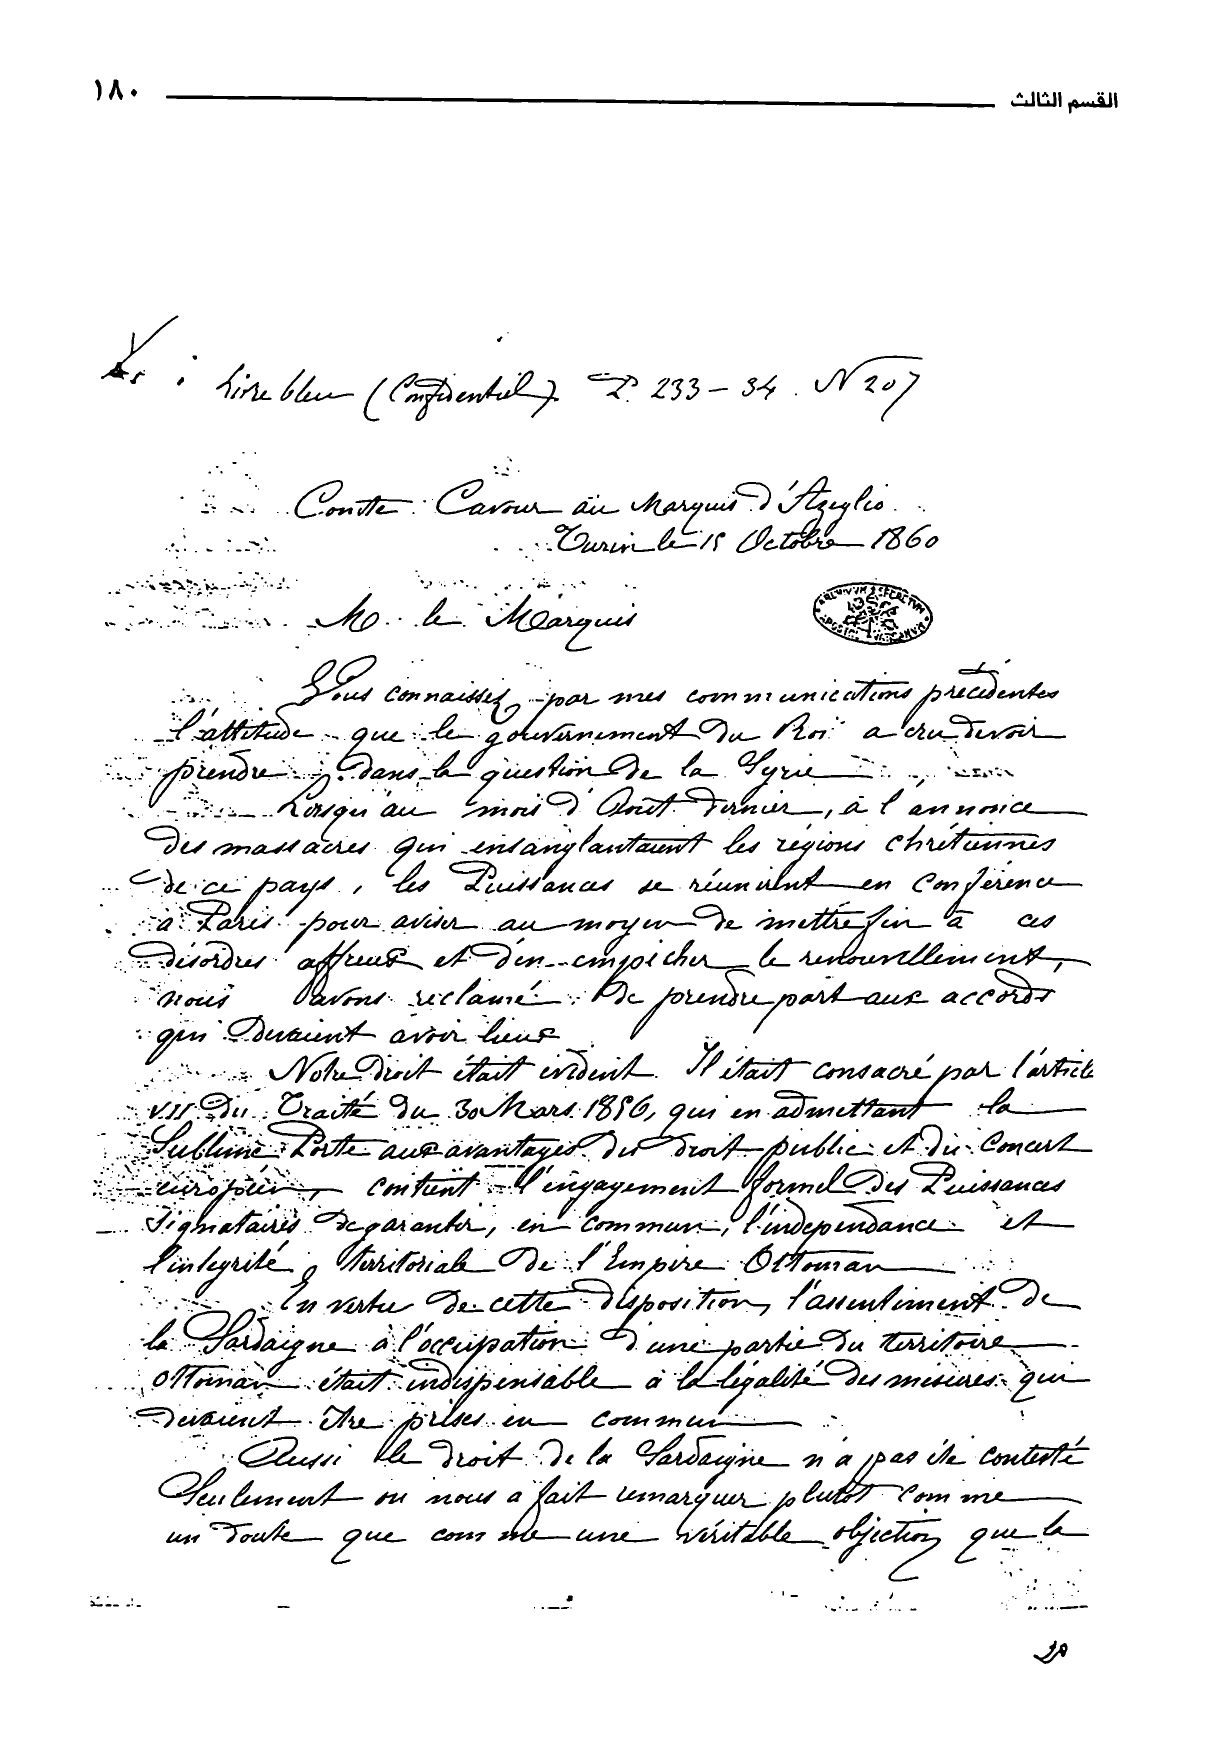 ١٨٠ القسم الثالث
Livre bleu (Confidentiel) P. 233-34. N 207
Comte Cavour au Marquis d'Azeglio
Turin le 15 Octobre 1860
M. le Marquis
ARCHIVUM SECRETUM APOSTOL. VATICANUM
Vous connaissez par mes communications précédentes
l'attitude que le gouvernement du Roi a cru devoir
prendre dans la question de la Syrie
Lorsqu'au mois d'Août dernier, à l'annonce
des massacres qui ensanglantaient les régions chrétiennes
de ce pays, les Puissances se réunirent en Conférence
à Paris pour aviser au moyen de mettre fin à ces
désordres affreux et d'en empêcher le renouvellement,
nous avons réclamé de prendre part aux accords
qui devaient avoir lieux
Notre droit était évident. Il était consacré par l'article
VII du Traité du 30 Mars 1856, qui en admettant la
Sublime Porte aux avantages du droit public et du Concert
européen, contient l'engagement formel des Puissances
signataires de garantir, en commun, l'indépendance et
l'intégrité territoriale de l'Empire Ottoman
En vertu de cette disposition, l'assentiment de
la Sardaigne à l'occupation d'une partie du territoire
ottoman était indispensable à la légalité des mesures qui
devaient être prises en commun
Aussi le droit de la Sardaigne n'a pas été contesté
Seulement on nous a fait remarquer plutôt comme
un doute que comme une véritable objection que la